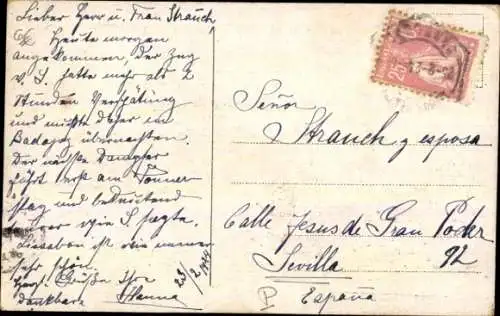 Lieber Herr u. Frau Strauch
Heute morgen
angekommen, der Zug
v. S. hatte mehr als 2
Stunden Verspätung
und mußte daher in
Badajoz übernachten.
Der nächste Dampfer
fährt erst am Donners
tag und bedeutend
wie S. sagte.
Lissabon ist wie immer
sehr schön.
Herz. Grüße Ihre
dankbare Hanna
23/2 1924
25
Señor
Strauch y esposa
Calle Jesus de Gran Poder
92
Sevilla
España